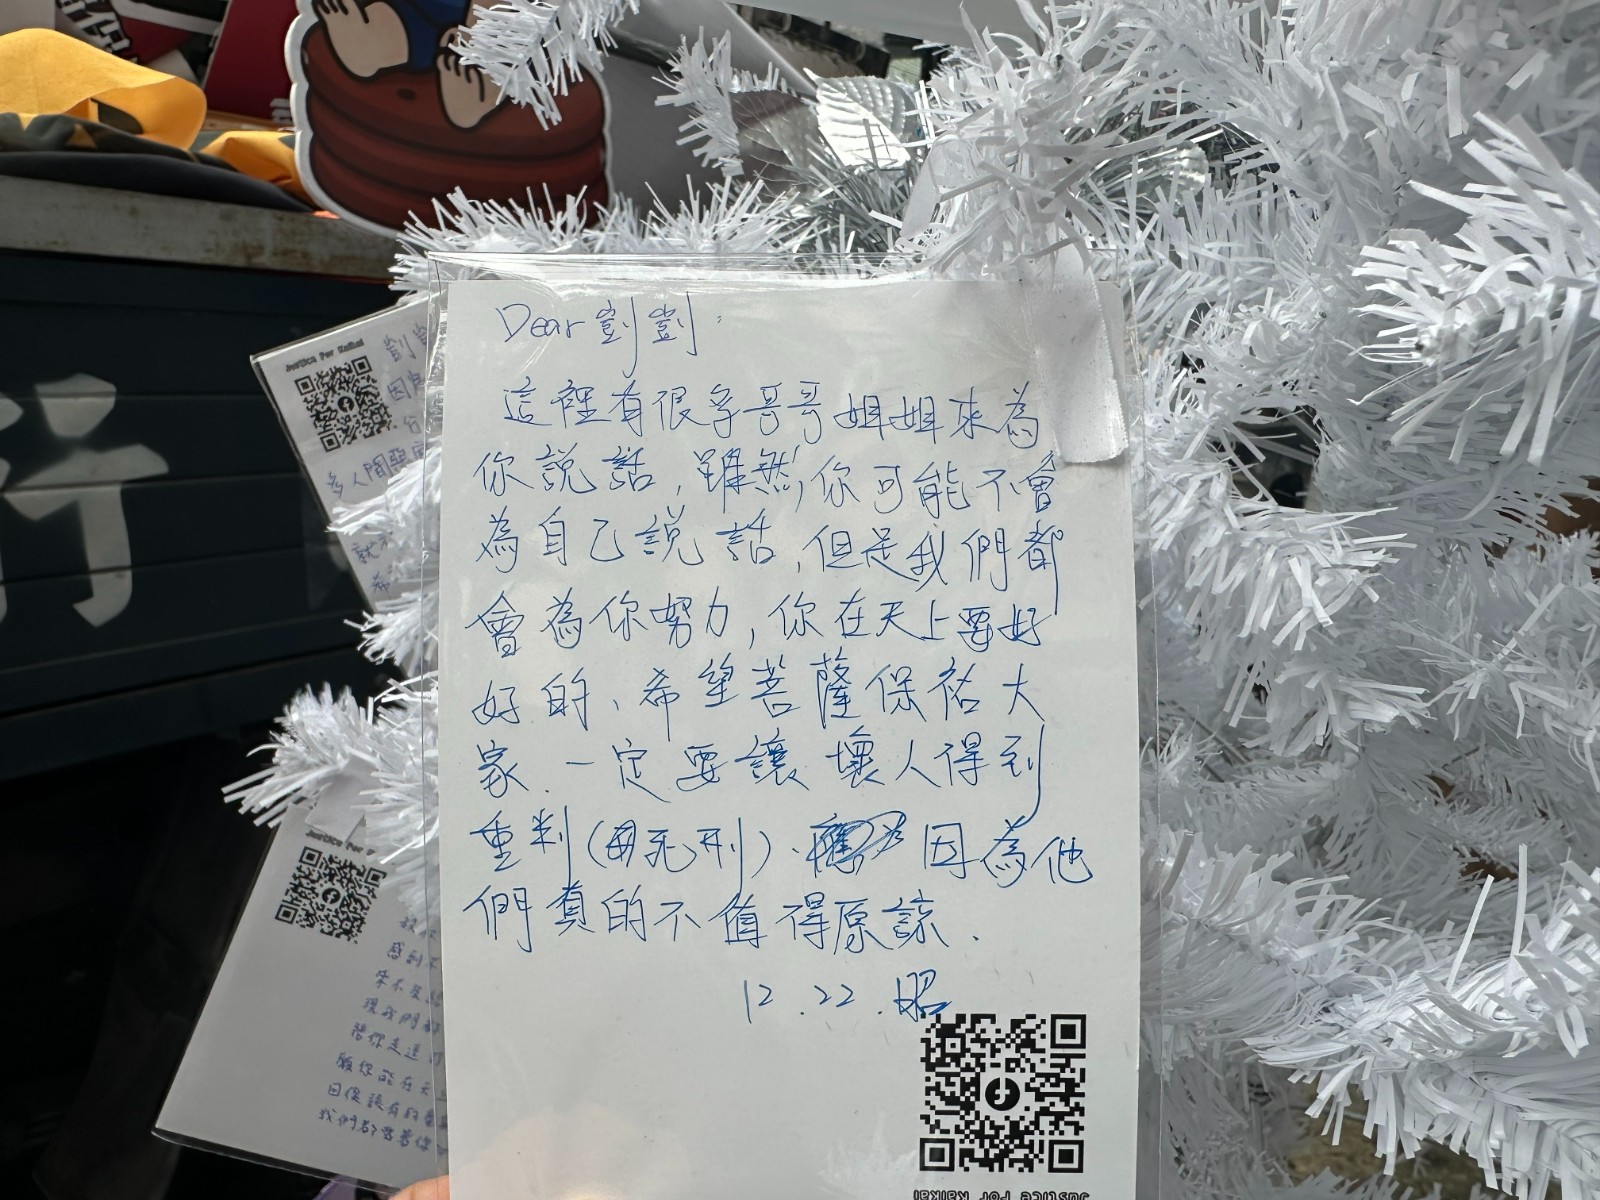 Dear 剴剴：
這裡有很多哥哥姐姐來為
你說話，雖然你可能不會
為自己說話，但是我們都
會為你努力，你在天上要好
好的、希望菩薩保祐大
家.一定要讓壞人得到
重判(毋死刑).因為他
們真的不值得原諒.
12.22.昭
Justice For Kaikai
Justice For Kaikai
剴
因
多人間惡
就
Justice For
感
來不
現我們都
陪你走這
願你能在天
日後該有的
我們都要善
行